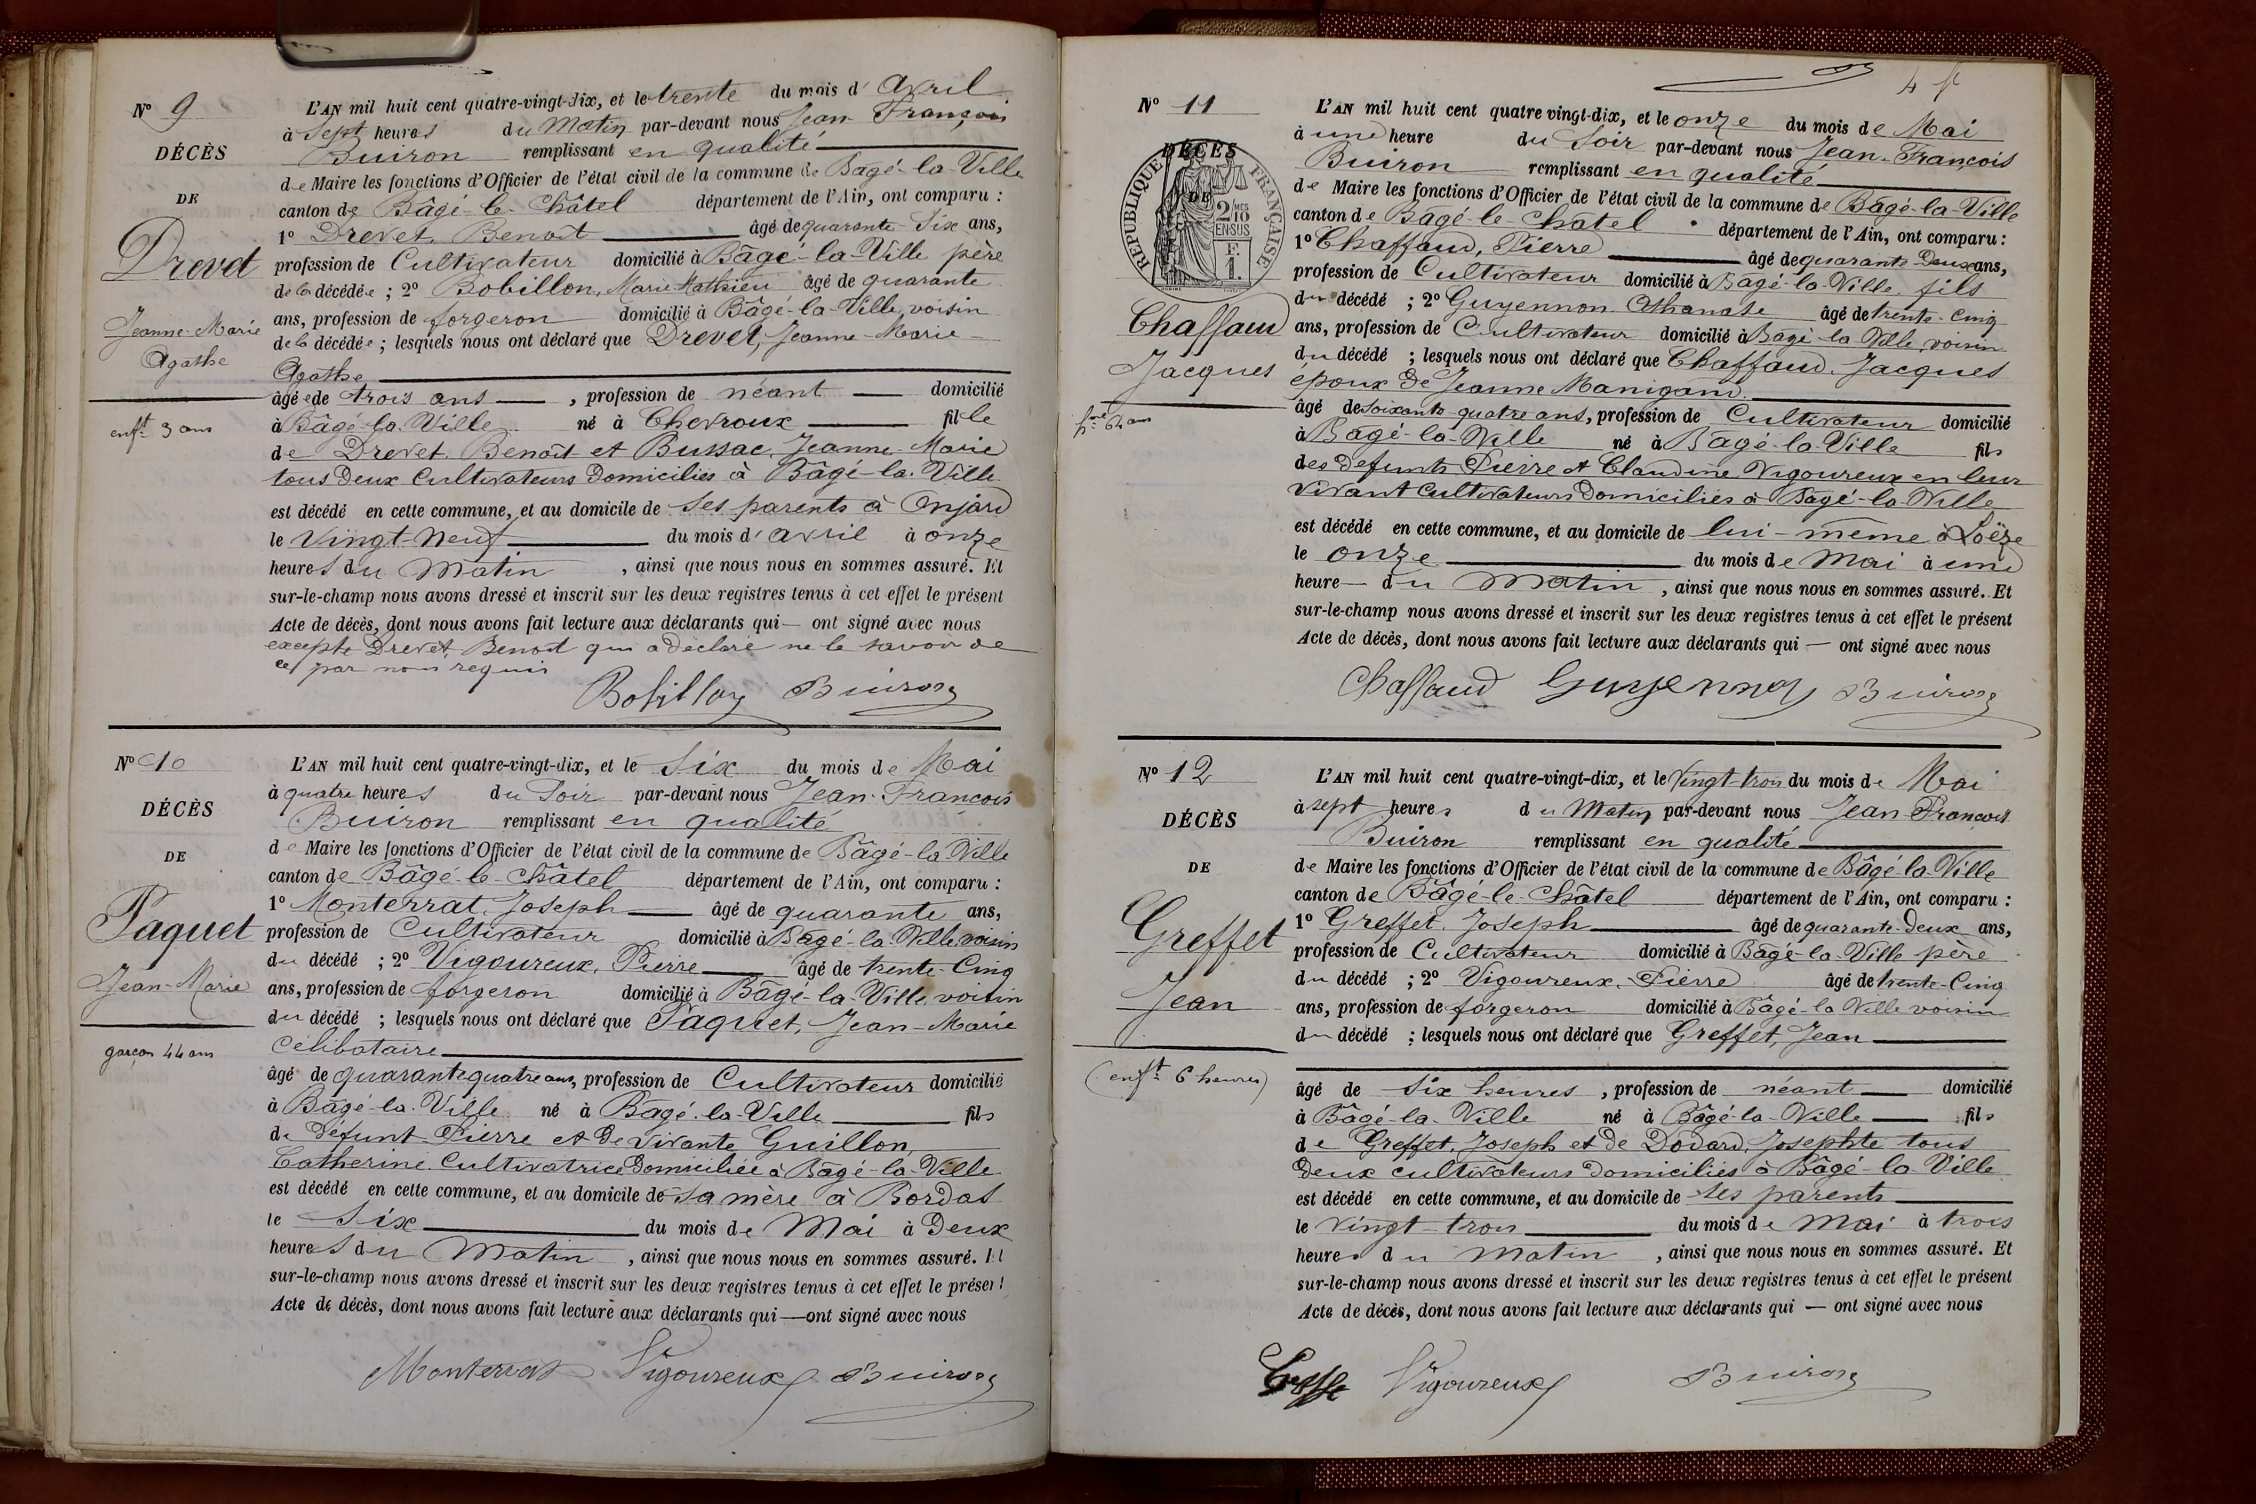 N° 9
DÉCÈS
DE
Drevet
Jeanne-Marie
Agathe
enft 3 ans
L'AN mil huit cent quatre-vingt-dix, et le trente du mois d'avril
à sept heures du Matin par-devant nous Jean François
Buiron remplissant en qualité
de Maire les fonctions d'Officier de l'état civil de la commune de Bâgé-la-Ville
canton de Bâgé-le-Châtel département de l'Ain, ont comparu :
1° Drevet, Benoît âgé de quarante-six ans,
profession de Cultivateur domicilié à Bâgé-la-Ville père
de la décédée ; 2° Bobillon, Marie Mathieu âgé de quarante
ans, profession de forgeron domicilié à Bâgé-la-Ville, voisin
de la décédée ; lesquels nous ont déclaré que Drevet, Jeanne-Marie
Agathe
âgée de trois ans , profession de néant domicilié
à Bâgé-la-Ville né à Chevroux fille
de Drevet, Benoît et Bussac, Jeanne-Marie
tous deux Cultivateurs domiciliés à Bâgé-la-Ville
est décédé en cette commune, et au domicile de ses parents à Onjard
le vingt-neuf du mois d'avril à onze
heures du Matin , ainsi que nous nous en sommes assuré. Et
sur-le-champ nous avons dressé et inscrit sur les deux registres tenus à cet effet le présent
Acte de décès, dont nous avons fait lecture aux déclarants qui — ont signé avec nous
excepté Drevet, Benoît qui a déclaré ne le savoir de
ce par nous requis
Bobillon Buiron
N° 10
DÉCÈS
DE
Paquet
Jean-Marie
garçon 44 ans
L'AN mil huit cent quatre-vingt-dix, et le six du mois de Mai
à quatre heures du Soir par-devant nous Jean-François
Buiron remplissant en qualité
de Maire les fonctions d'Officier de l'état civil de la commune de Bâgé-la-Ville
canton de Bâgé-le-Châtel département de l'Ain, ont comparu :
1° Monterrat, Joseph âgé de quarante ans,
profession de Cultivateur domicilié à Bâgé-la-Ville voisin
du décédé ; 2° Vigoureux, Pierre âgé de trente-cinq
ans, profession de forgeron domicilié à Bâgé-la-Ville, voisin
du décédé ; lesquels nous ont déclaré que Paquet, Jean-Marie
Célibataire
âgé de quarante quatre ans, profession de Cultivateur domicilié
à Bâgé-la-Ville né à Bâgé-la-Ville fils
de défunt Pierre et de vivante Guillon,
Catherine, Cultivatrice domiciliée à Bâgé-la-Ville
est décédé en cette commune, et au domicile de sa mère à Bordat
le six du mois de Mai à deux
heures du Matin , ainsi que nous nous en sommes assuré. Et
sur-le-champ nous avons dressé et inscrit sur les deux registres tenus à cet effet le présent
Acte de décès, dont nous avons fait lecture aux déclarants qui — ont signé avec nous
Monterrat Vigoureux Buiron
N° 11
DÉCÈS
DE
RÉPUBLIQUE FRANÇAISE
2/10 MES
EN SUS
F.
1.
Chaffaud
Jacques
64 ans
L'AN mil huit cent quatre vingt-dix, et le onze du mois de Mai
à une heure du Soir par-devant nous Jean-François
Buiron remplissant en qualité
de Maire les fonctions d'Officier de l'état civil de la commune de Bâgé-la-Ville
canton de Bâgé-le-Châtel département de l'Ain, ont comparu :
1° Chaffaud, Pierre âgé de quarante-deux ans,
profession de Cultivateur domicilié à Bâgé-la-Ville, fils
du décédé ; 2° Guyennon Athanase âgé de trente-cinq
ans, profession de Cultivateur domicilié à Bâgé-la-Ville, voisin
du décédé ; lesquels nous ont déclaré que Chaffaud, Jacques
époux de Jeanne Manigand
âgé de soixante-quatre ans, profession de Cultivateur domicilié
à Bâgé-la-Ville né à Bâgé-la-Ville fils
des défunts Pierre et Claudine Vigoureux en leur
vivant Cultivateurs domiciliés à Bâgé-la-Ville
est décédé en cette commune, et au domicile de lui-même à Loëze
le onze du mois de Mai à une
heure — du Matin , ainsi que nous nous en sommes assuré. Et
sur-le-champ nous avons dressé et inscrit sur les deux registres tenus à cet effet le présent
Acte de décès, dont nous avons fait lecture aux déclarants qui — ont signé avec nous
Chaffaud Guyennon Buiron
N° 12
DÉCÈS
DE
Greffet
Jean
(enft 6 heures)
L'AN mil huit cent quatre-vingt-dix, et le vingt-trois du mois de Mai
à sept heures du Matin par-devant nous Jean François
Buiron remplissant en qualité
de Maire les fonctions d'Officier de l'état civil de la commune de Bâgé-la-Ville
canton de Bâgé-le-Châtel département de l'Ain, ont comparu :
1° Greffet, Joseph âgé de quarante-deux ans,
profession de Cultivateur domicilié à Bâgé-la-Ville père
du décédé ; 2° Vigoureux, Pierre âgé de trente-cinq
ans, profession de forgeron domicilié à Bâgé-la-Ville voisin
du décédé ; lesquels nous ont déclaré que Greffet, Jean
âgé de six heures , profession de néant domicilié
à Bâgé-la-Ville né à Bâgé-la-Ville fils
de Greffet, Joseph et de Dodard, Josephte tous
deux cultivateurs domiciliés à Bâgé-la-Ville
est décédé en cette commune, et au domicile de ses parents
le vingt-trois du mois de Mai à trois
heures du Matin , ainsi que nous nous en sommes assuré. Et
sur-le-champ nous avons dressé et inscrit sur les deux registres tenus à cet effet le présent
Acte de décès, dont nous avons fait lecture aux déclarants qui — ont signé avec nous
Vigoureux Buiron